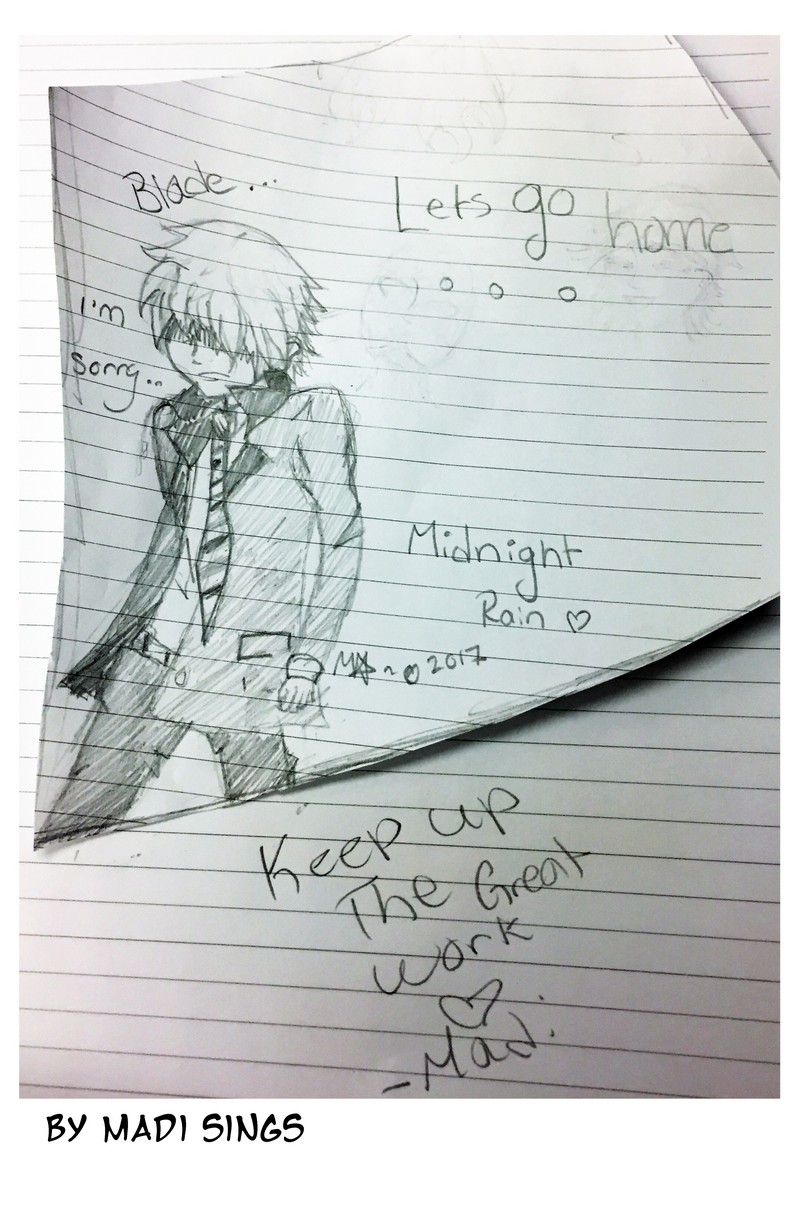 Blade...
Lets go home
I'm
sorry..
Midnight
Rain ♡
2017
Keep up
The Great
work
♡
-Madi
BY MADI SINGS